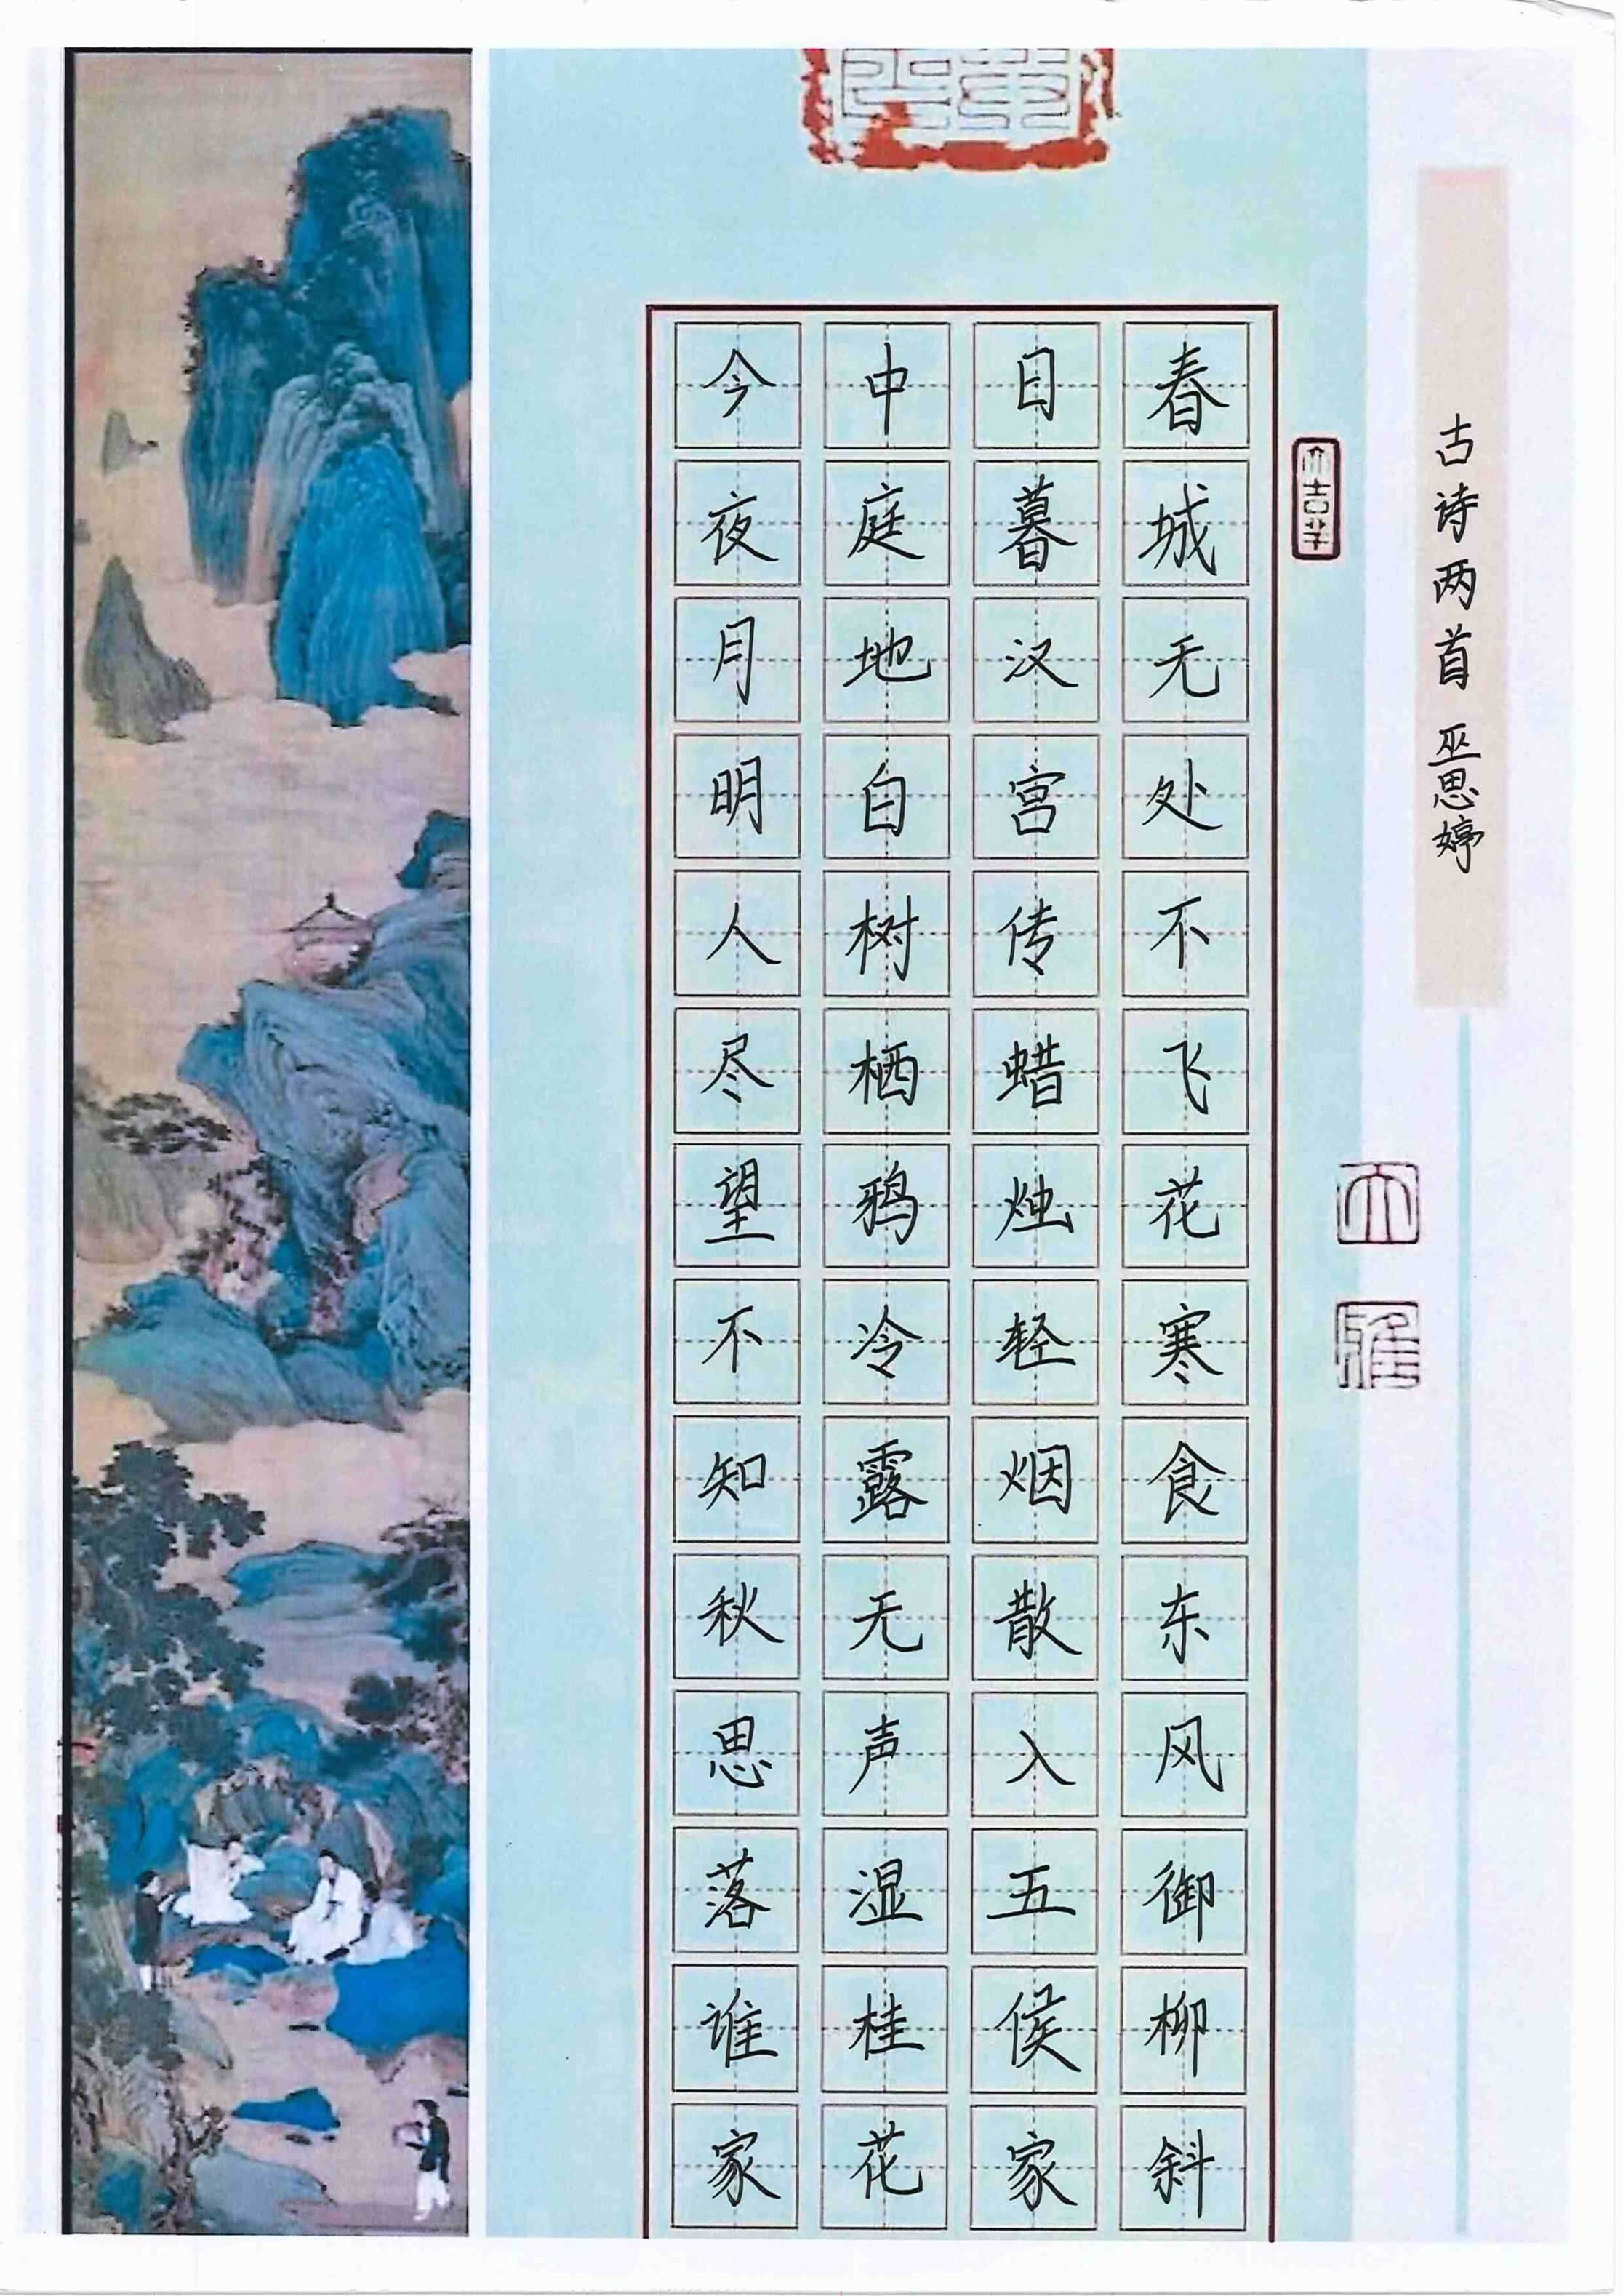 古诗两首 巫思婷
春城无处不飞花寒食东风御柳斜
日暮汉宫传蜡烛轻烟散入五侯家
中庭地白树栖鸦冷露无声湿桂花
今夜月明人尽望不知秋思落谁家
大吉羊
大雅